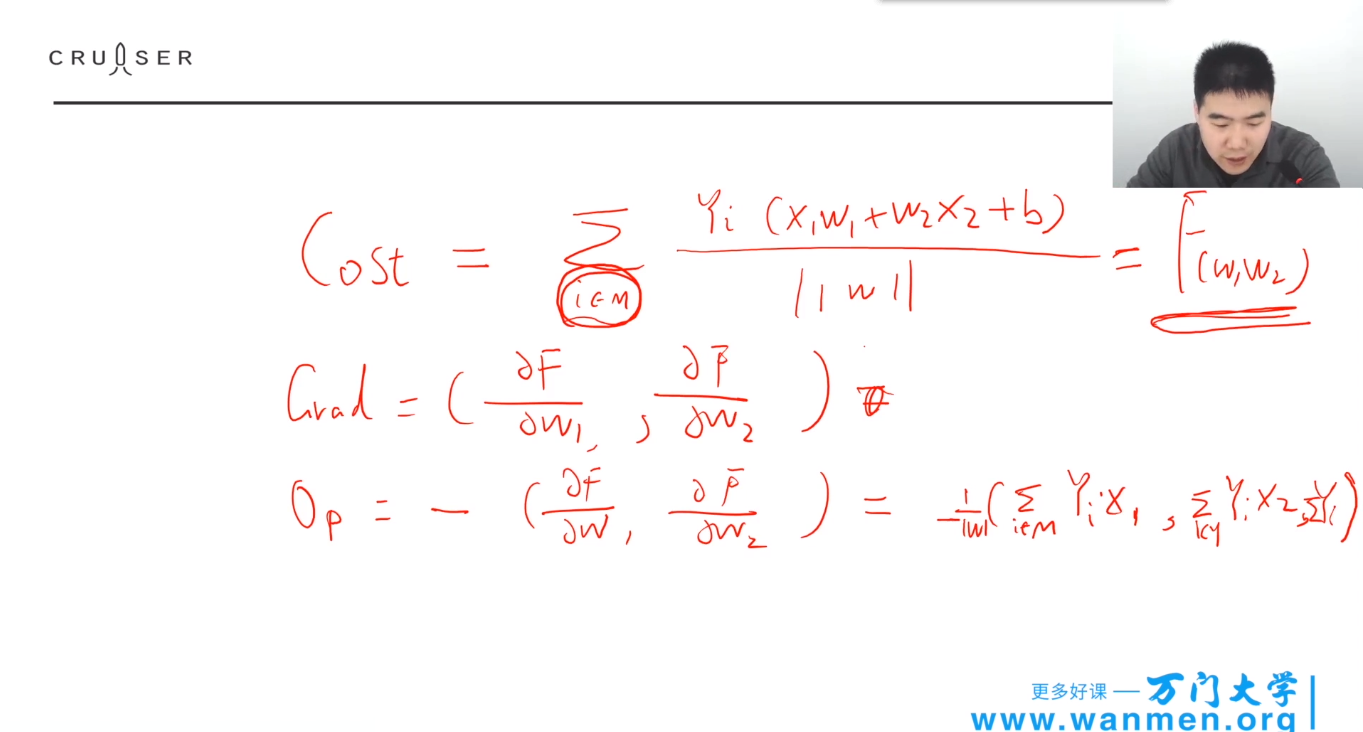 CRUISER
Cost = Σ i∈M Yi (x1w1+w2x2+b) / ||w|| = F(w1w2)
Grad = (∂F/∂w1, ∂F/∂w2)
Op = − (∂F/∂w1, ∂F/∂w2) = −1/|w| (Σ i∈M Yi x1, Σ Yi x2, ΣYi)
更多好课 — 万门大学
www.wanmen.org